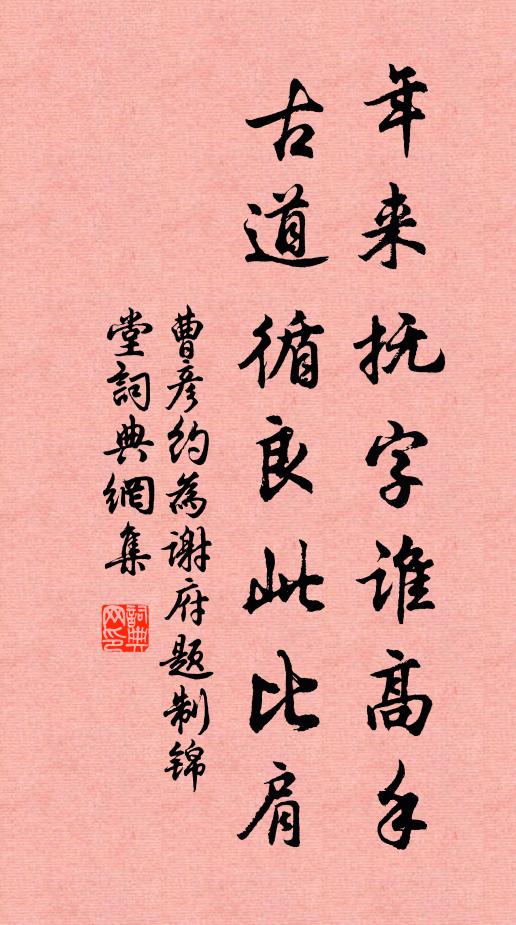 年来抚字谁高手
古道循良此比肩
曹彦约為谢府题制锦
堂詞典網集
詞典网印